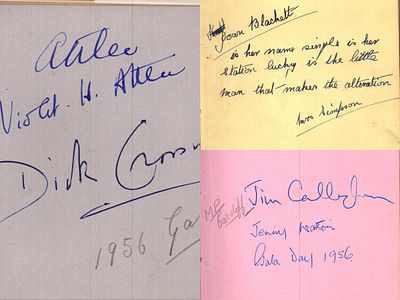 Attlee
Violet. H. Attlee
Dick Cross
1956 Ga
Joan Blackett
is her name single is her
station lucky is the little
man that makes the alteration
Mrs Simpson
Jim Callaghan
MP
Cardiff
Jenny Watson
Gala Day 1956